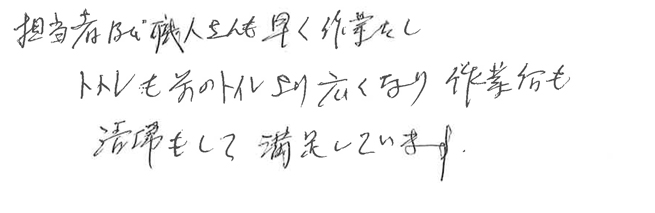 担当者及び職人さんも早く作業をし
トイレも前のトイレより広くなり作業后も
清掃もして満足しています.